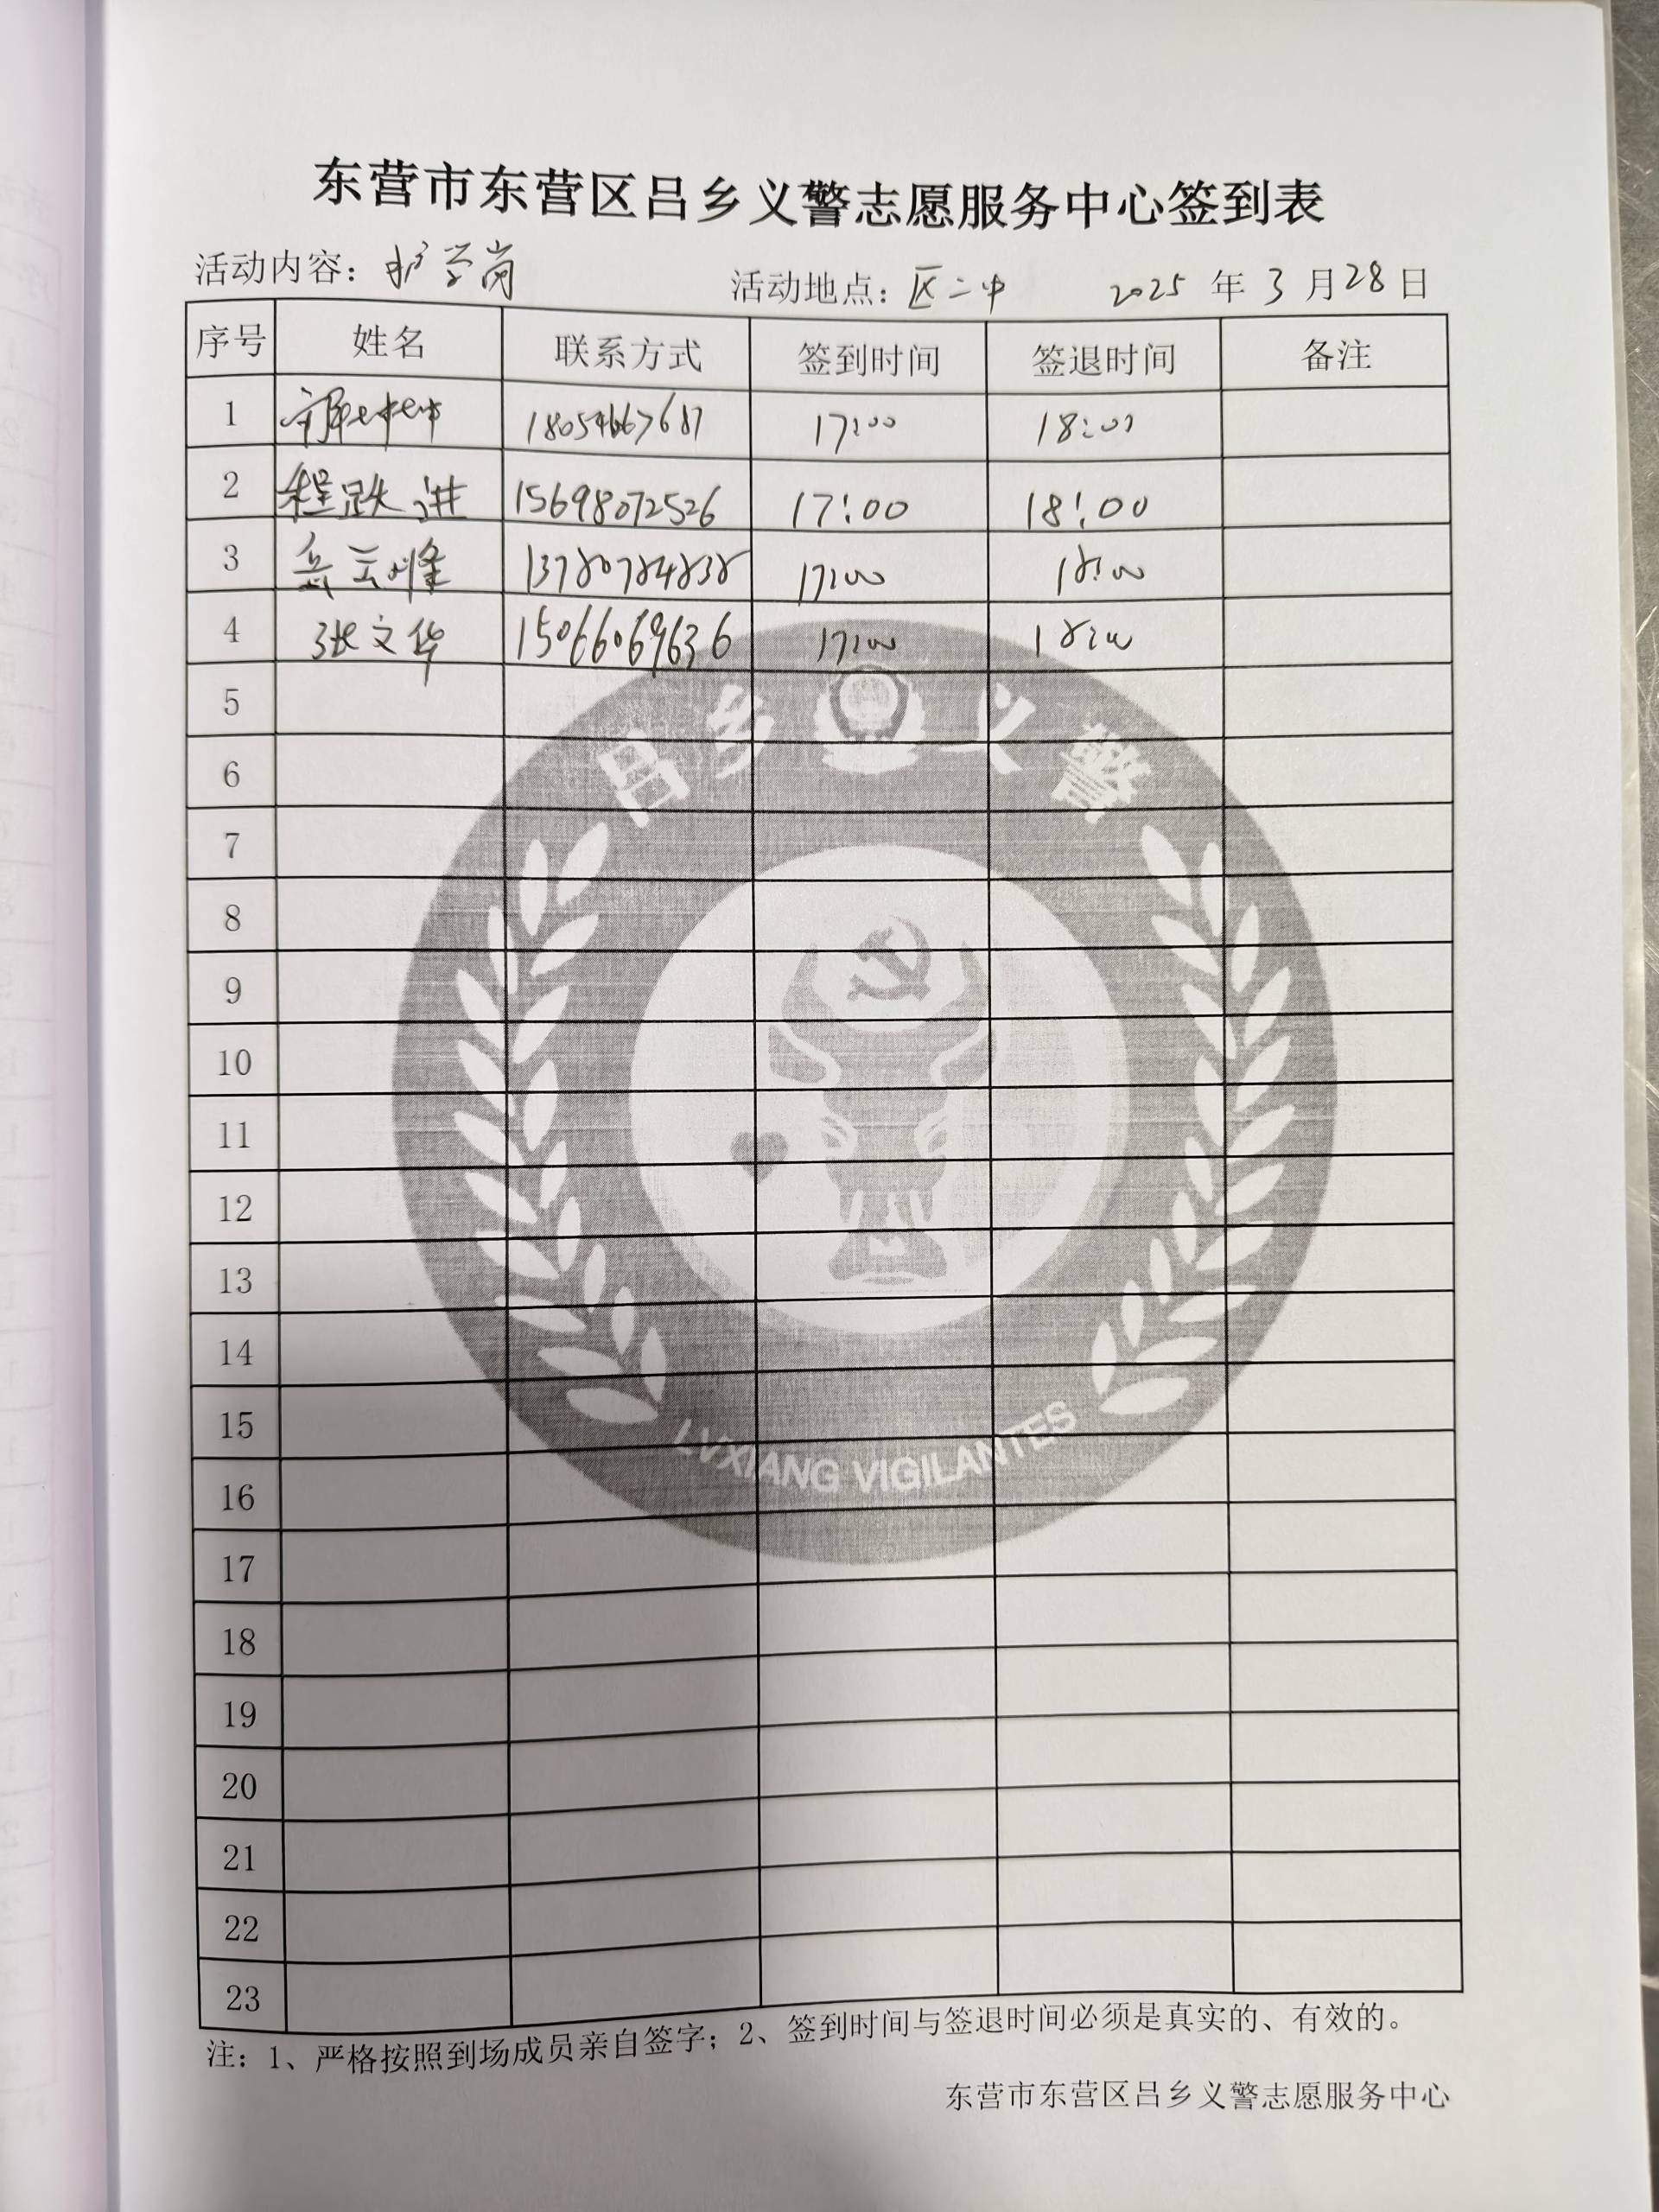 东营市东营区吕乡义警志愿服务中心签到表
活动内容：护学岗 活动地点：区二中 2025 年 3 月 28 日
序号 姓名 联系方式 签到时间 签退时间 备注
1 18054667687 17:00 18:00
2 程跃进 15698072526 17:00 18:00
3 岳云峰 13780784838 17:00 18:00
4 张文华 15066069636 17:00 18:00
5
6
7
8
9
10
11
12
13
14
15
16
17
18
19
20
21
22
23
吕乡义警
LVXIANG VIGILANTES
注：1、严格按照到场成员亲自签字；2、签到时间与签退时间必须是真实的、有效的。
东营市东营区吕乡义警志愿服务中心